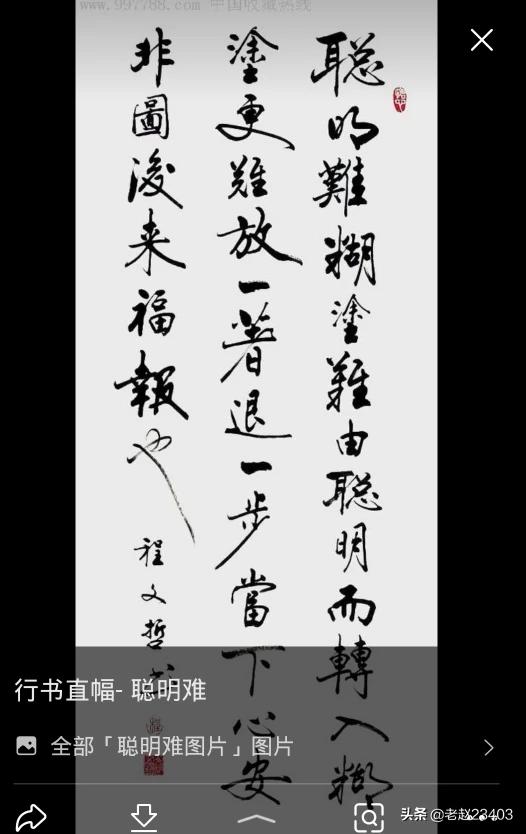 www.997788.com 中国收藏热线
聪明難糊塗難由聪明而轉入糊
塗更難放一著退一步當下心安
非圖後来福報也
程文哲
行书直幅- 聪明难
全部「聪明难图片」图片
头条 @老赵23403